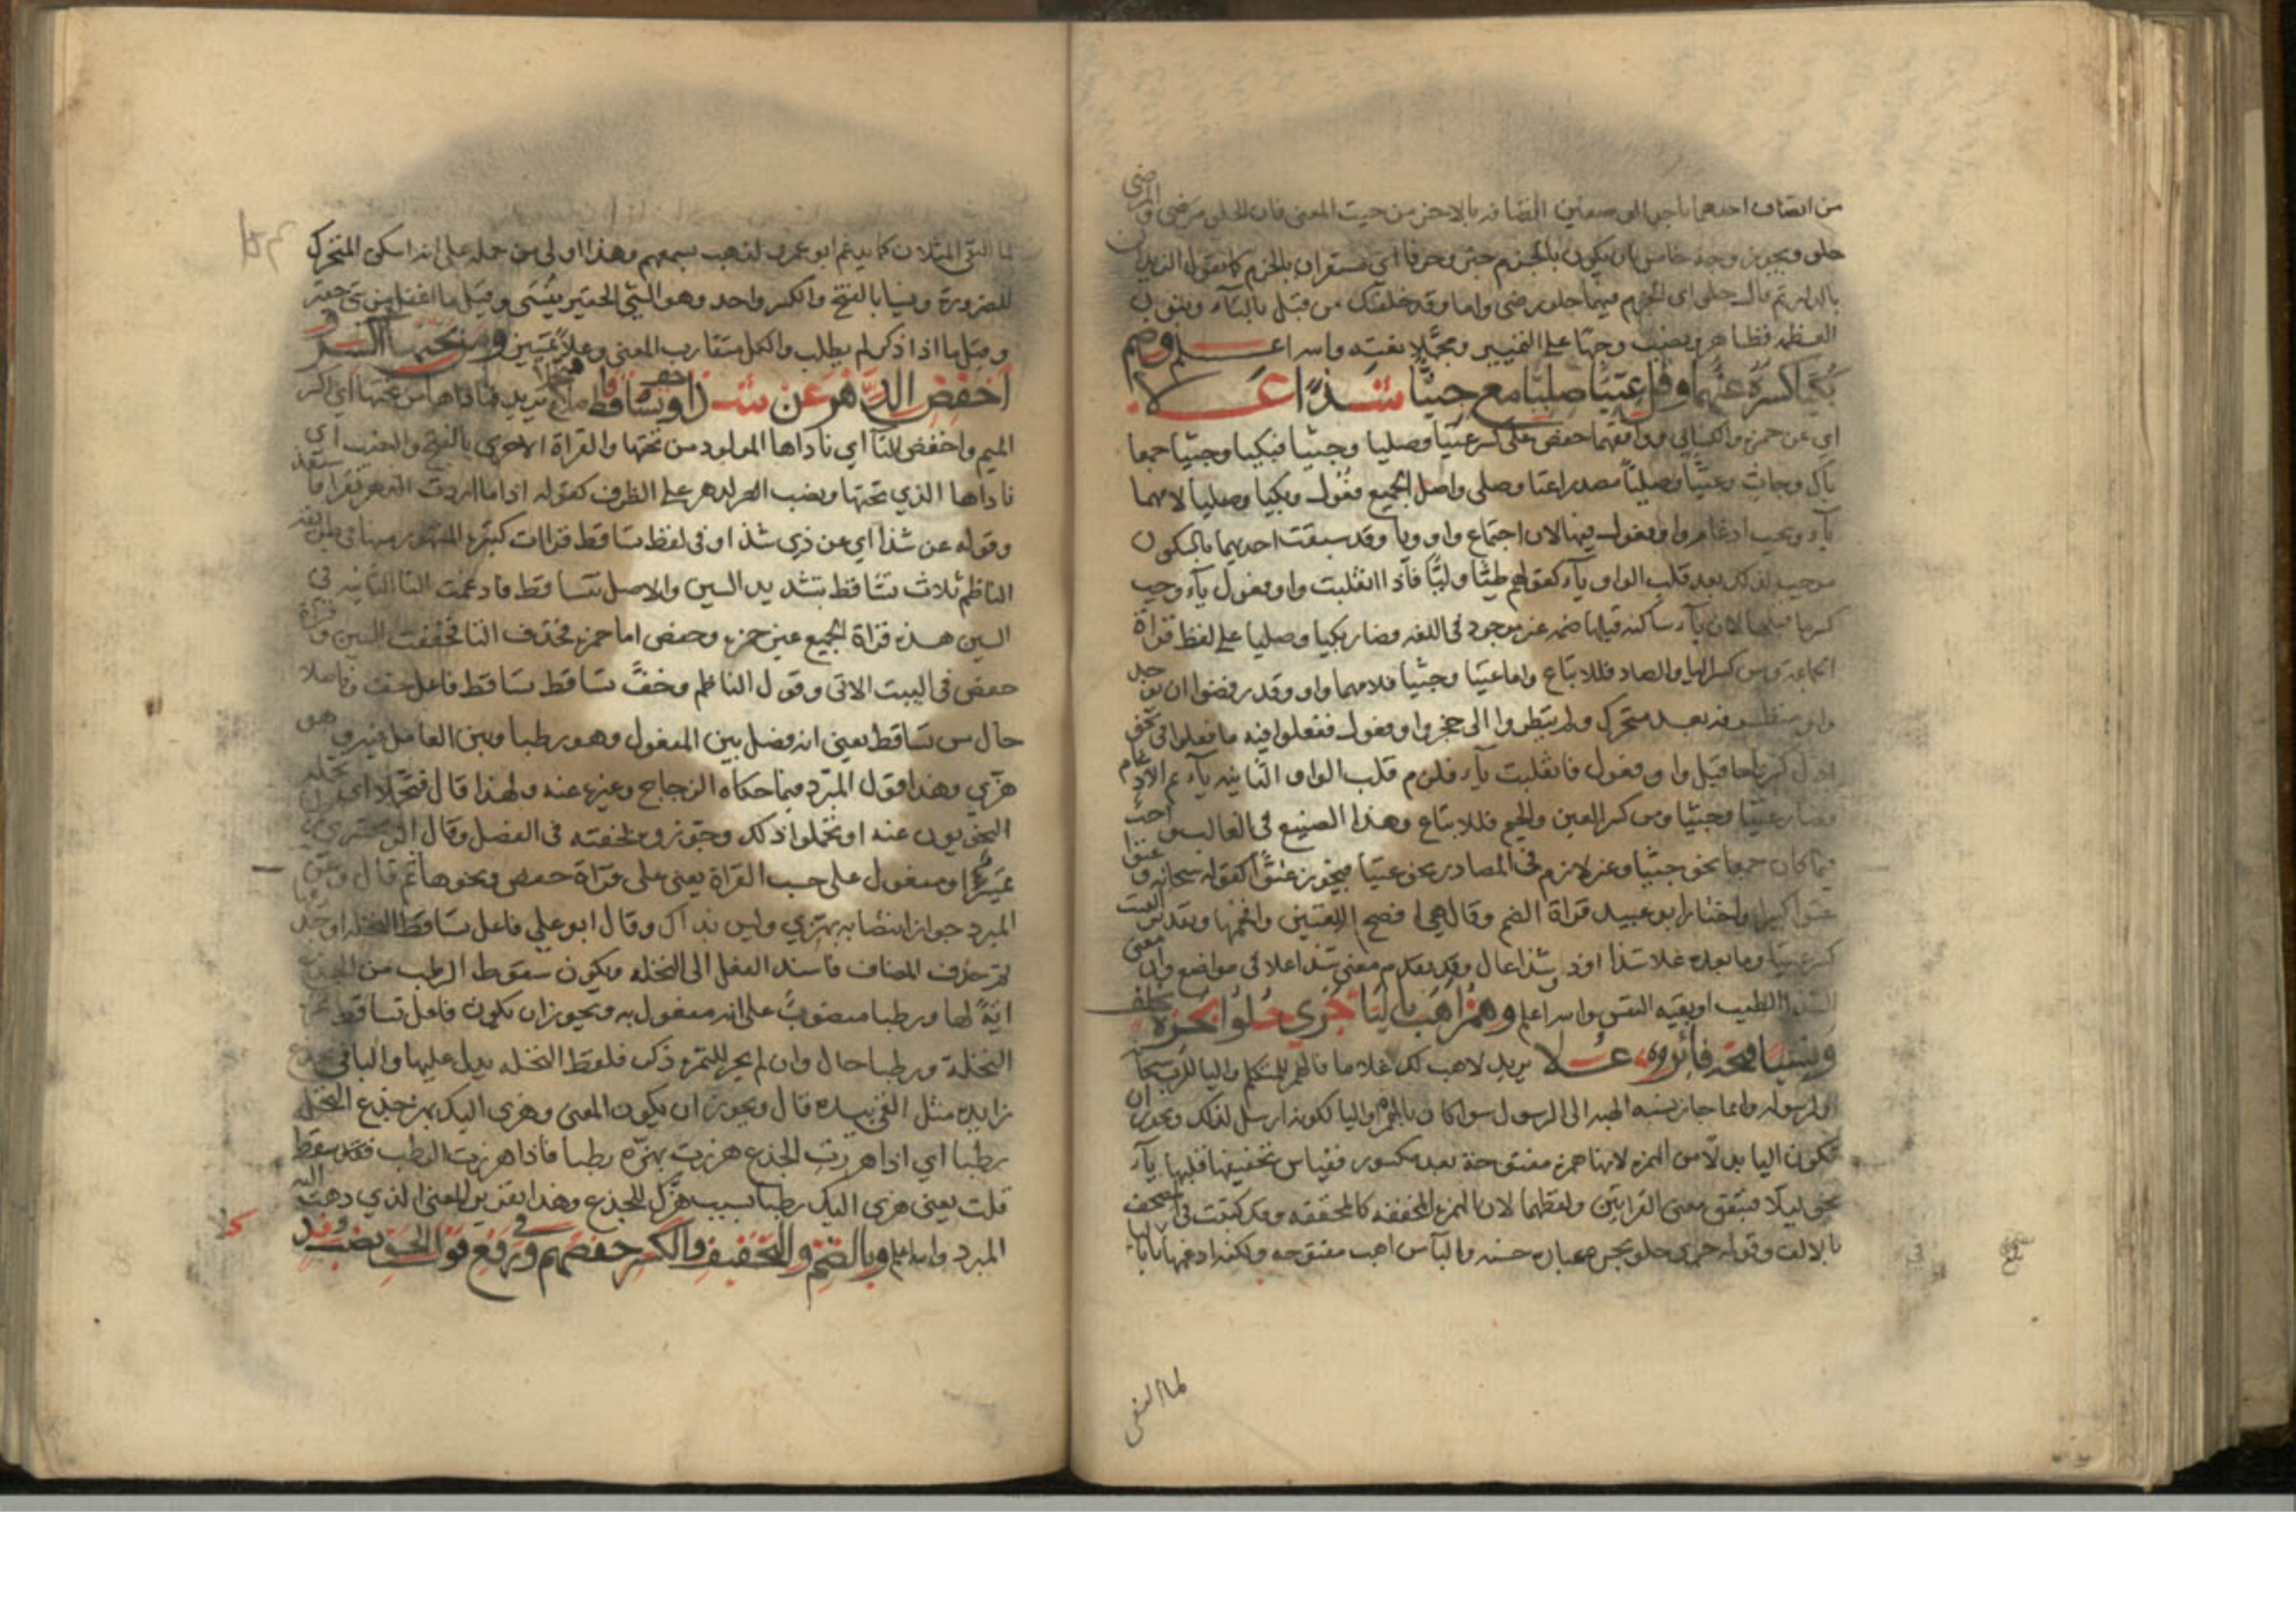 من اتصاف احدهما باجرا لو صفين المضافه بالاخر من حيث المعنى فان الحلو مرضى والمرضى
حلو ويجوز وجه خامس بان يكون بالجزم خبر وحرفا اي مستقران بالجزم كما تقول الزيدان
بالدار ثم قال حلو اي الجزم فيهما حلو رضى واما وقد خلقتك من قبل بالتاء وبنون
العظمه فظاهر ونصب وجها على التمييز ومجملا نعته والله اعلم وضم
بكيا كسره عنهما وقل عتيا صليا مع جثيا شذا علا
اي عن حمزه والكسائي ووافقهما حفص على كسر عتيا وصليا وجثيا فبكيا وجثيا جمعا
باك وجاث وعتيا وصليا مصدرا عتا وصلى واصل الجميع فعول وبكيا وصليا لامهما
ياء ويجب ادغام واو فعول فيها لان اجتماع واو ويا وقد سبقت احديهما بالسكون
موجب لذلك بعد قلب الواو ياء كقولهم طيا وليا فاذا انقلبت واو فعول ياء وجب
كسر ما قبلها لان ياء ساكنه قبلها ضمه غير موجود في اللغه فصار بكيا وصليا على لفظ قراة
الجماعة ومن كسر البا والصاد فللاتباع واما عتيا وجثيا فلامهما واو وقد رفضوا ان
واو متطرفه بعد متحرك ولم ينظروا الى حجز واو فعول ففعلوا فيه ما فعلوا في نحو
ادل كسر ما قبل واو فعول فانقلبت ياء فلزم قلب الواو الثانيه ياء ثم الادغام
فصار عتيا وجثيا ومن كسر العين والجيم فللاتباع وهذا الصنيع في الغالب
فيما كان جمعا نحو جثيا وغير لازم في المصادر نحو عتيا فيجوز عتوا كقوله سبحانه وعتوا
عتوا كبيرا واختار ابو عبيد قراة الضم وقال هي افصح اللغتين وافخمها وتقدير البيت
كسر عتيا وما بعده علا شذا او ذا شذا عال وقد تقدم معنى شذا علا في مواضع وان معنى
الشذا الطيب او بقيه النفس والله اعلم وهمز اهب باليا جرى حلو بحره بخلف
ونسيا فتحه فائز علا يريد لاهب لك غلاما فالهمز للمتكلم واليا للرب سبحانه
او لرسوله وانما جاز نسبه الهبه الى الرسول سوا كان بالهمزه واليا لكونه ارسل لذلك ويجوز ان
تكون اليا بدلا من الهمزه لانها همزه مفتوحة بعد مكسور فقياس تخفيفها قلبها ياء
نحو ليلا فتتفق معنى القراتين ولفظهما لان الهمزه المخففه كالمحققه وقد كتبت في المصحف
بالالف وقوله جرى حلو بحره عباره حسنه والبا من اهب مفتوحه ولكنه ادغمها بالبا
لما التقى
لما التقى المثلان كما يدغم ابو عمرو لذهب بسمعهم وهذا اولى من حمله على انه اسكن المتحرك
للضرورة ونسيا بالفتح والكسر واحد وهو الشي الحقير ينسى وقيل ما اغفل من شي حقير
وقيل ما اذا ذكر لم يطلب والكل متقارب المعنى وعلا تمييز ومن تحتها اكسر و
اخفض الدهر عن شذا وخف تساقط فاصلا فتحملا يريد فناداها من تحتها اي اكسر
الميم واخفض التا اي ناداها المولود من تحتها والقراة الاخرى بالفتح والنصب اي
ناداها الذي تحتها ونصب الدهر على الظرف كقوله اذا ما اردت الدهر تقرا فاستعذ
وقوله عن شذا اي عن ذي شذا وفي لفظ تساقط قرات كثيره المشهور منها في طريقة
الناظم ثلاث تساقط بتشديد السين والاصل تتساقط فادغمت التا الثانيه في
السين هذه قراة الجميع غير حمزه وحفص اما حمزه فحذف التا فخففت السين وقراة
حفص في البيت الاتى وقول الناظم وخف تساقط تساقط فاعل خف وفاصلا
حال من تساقط يعني انه فصل بين المفعول وهو رطبا وبين العامل فيه وهو
هزي وهذا قول المبرد فيما حكاه الزجاج وغيره عنه ولهذا قال فتحملا اي تحمله
النحويون عنه او تحملوا ذلك وجوزوه لخفته في الفصل وقال الزمخشري
تمييز او مفعول على حسب القراة يعني على قراة حفص ونحوها ثم قال وعن
المبرد جواز انتصابه بهزي وليس بذاك وقال ابو علي فاعل تساقط النخله او جذع
ثم حذف المضاف فاسند الفعل الى النخله ويكون سقوط الرطب من الجذع
اية لها ورطبا منصوب على انه مفعول به ويجوز ان يكون فاعل تساقط
النخلة ورطبا حال وان لم يجر للتمره ذكر فلفظ النخله يدل عليها والبا في
زايده مثل القى بيده قال ويجوز ان يكون المعنى وهزي اليك بهز جذع النخله
رطبا اي اذا هززت الجذع هززت بهزه رطبا فاذا هززت الرطب فقد سقط
قلت يعني هزي اليك رطبا بسبب هزك للجذع وهذا تقرير للمعنى الذي ذهب اليه
المبرد والله اعلم وبالضم والتخفيف والكسر حفصهم وفي رفع قول الحق نصب ند